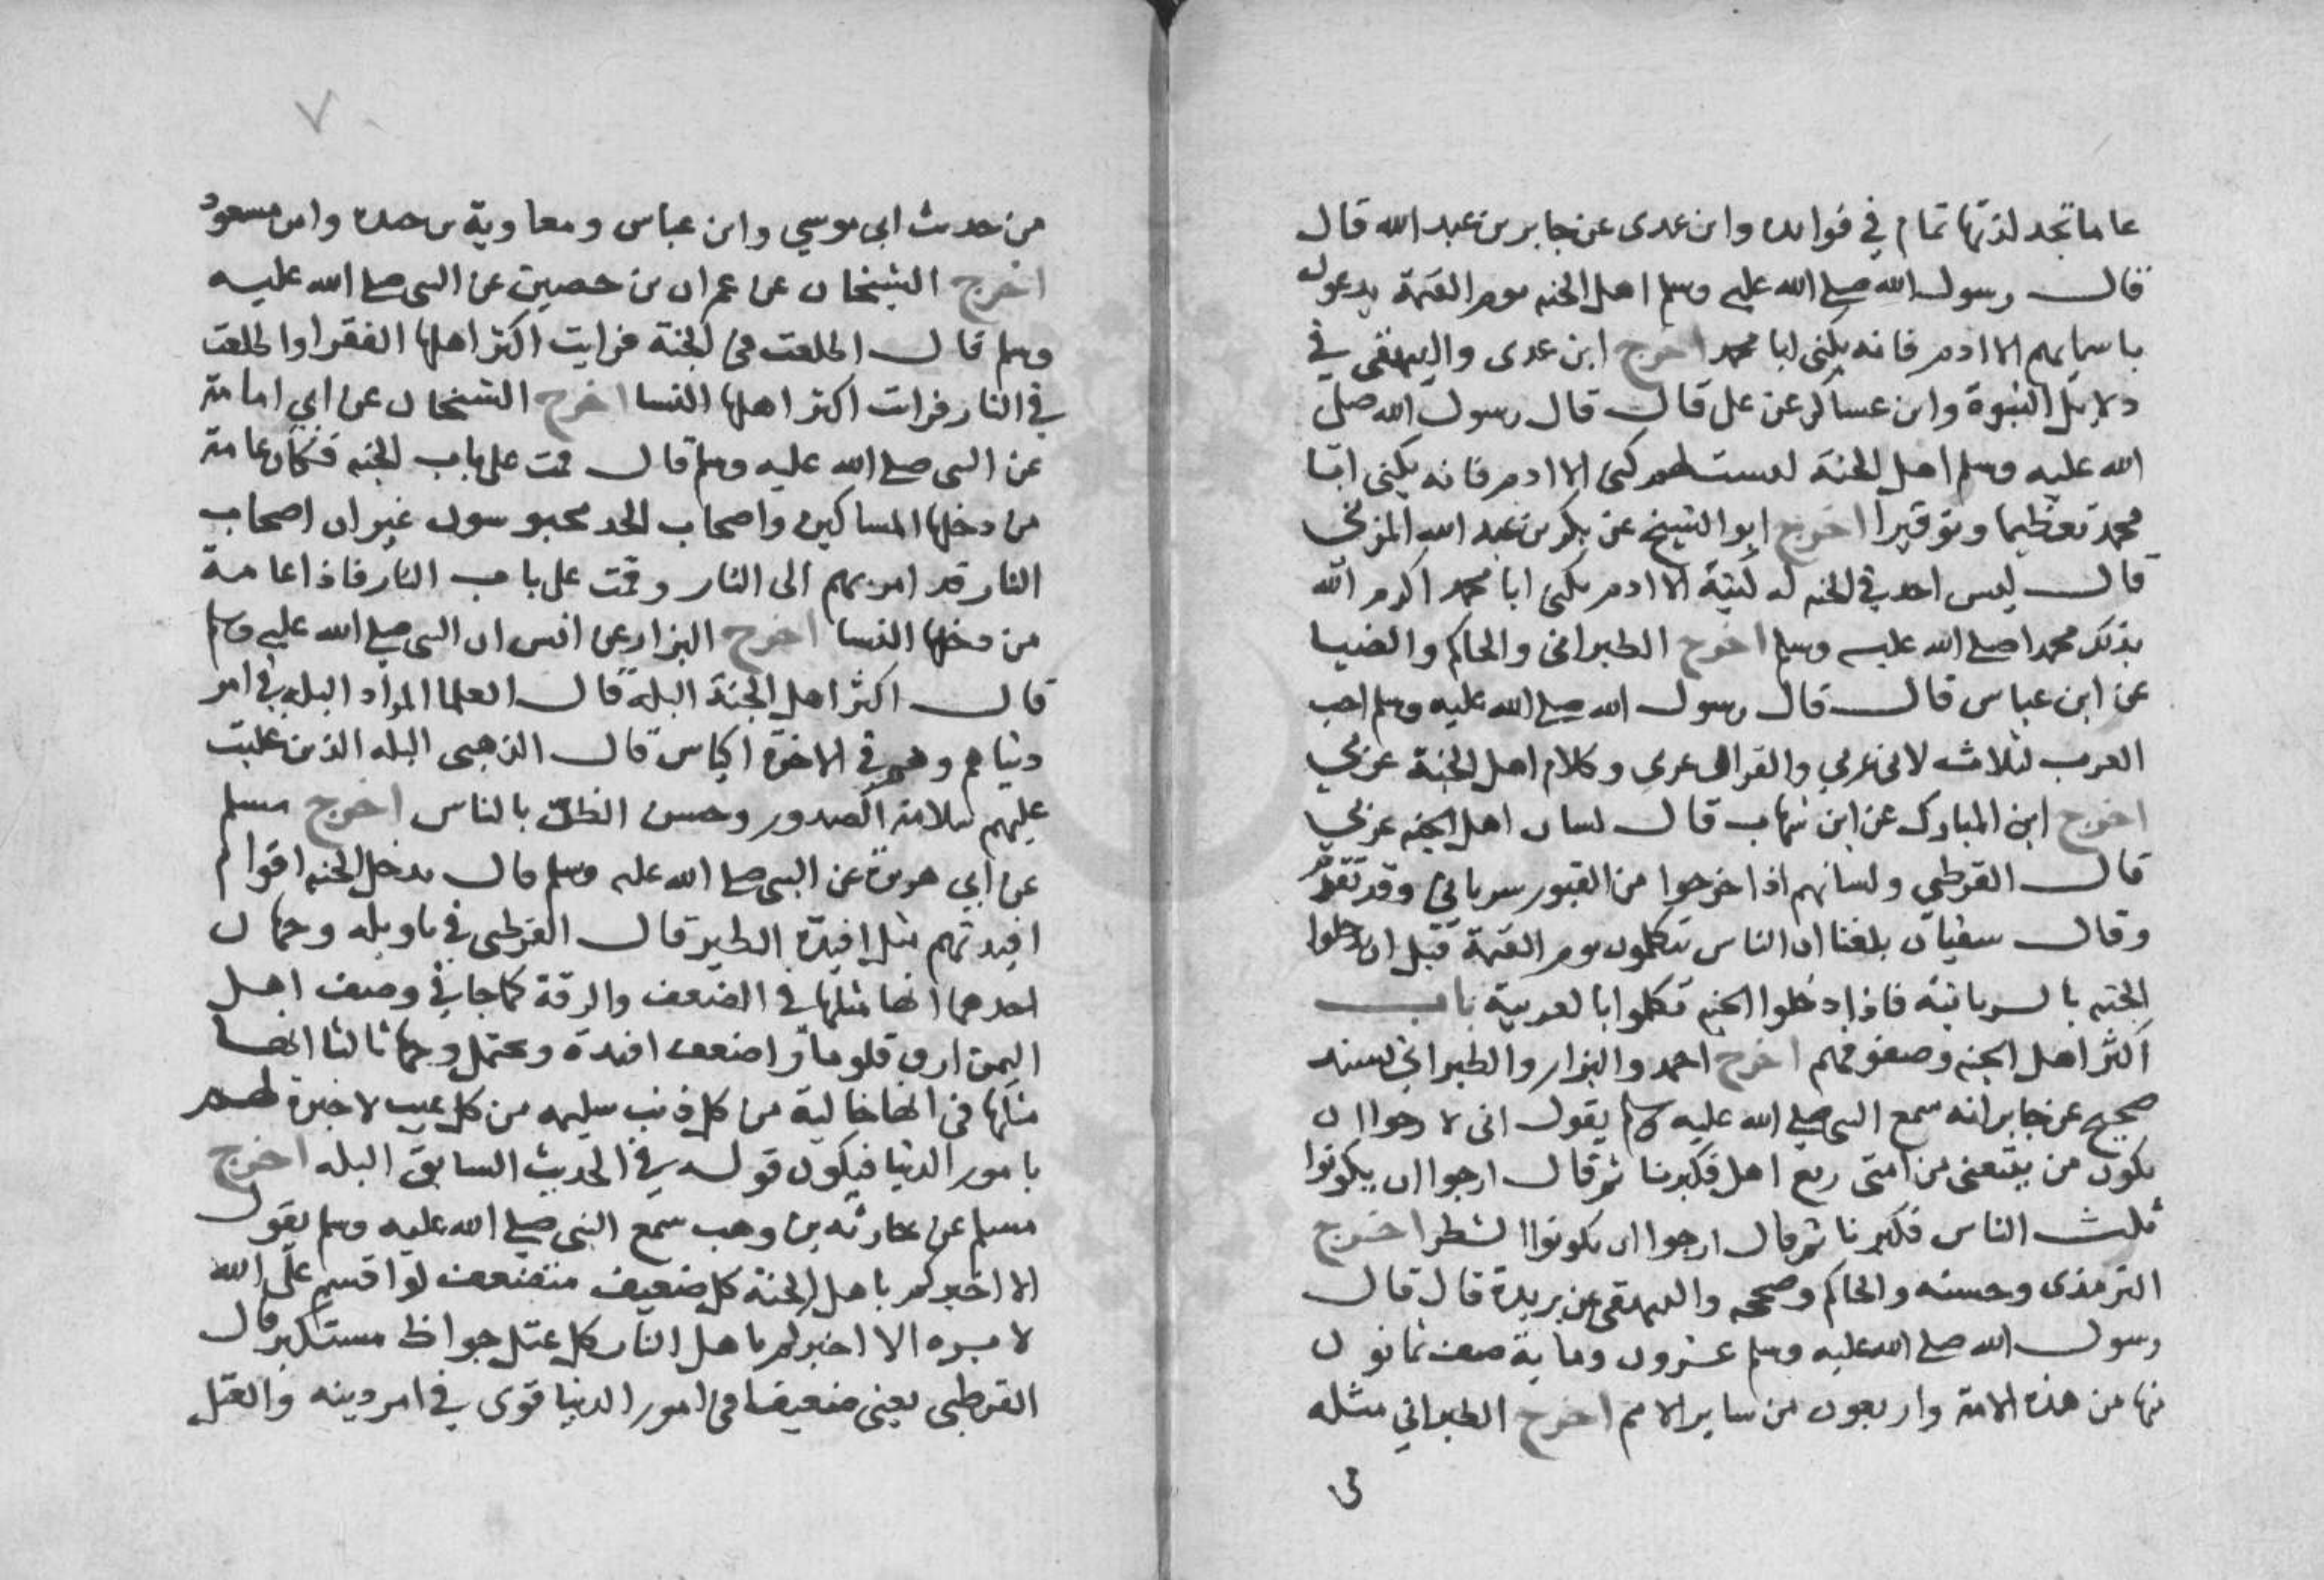 عاما تجد لذتها تمام في فوايده وابن عدى عن جابر بن عبد الله قال
قال رسول الله صلى الله عليه وسلم اهل الجنه يوم القيمة يدعون
باسمايهم الا ادم فانه يكنى ابا محمد اخرج ابن عدى والبيهقى في
دلايل النبوة وابن عساكر عن على قال قال رسول الله صلى
الله عليه وسلم اهل الجنة ليست لهم كنى الا ادم فانه يكنى ابا
محمد تعظيما وتوقيرا اخرج ابو الشيخ عن بكر بن عبد الله المزني
قال ليس احد في الجنه له كنية الا ادم يكنى ابا محمد اكرم الله
بذلك محمدا صلى الله عليه وسلم اخرج الطبرانى والحاكم والضيا
عن ابن عباس قال قال رسول الله صلى الله عليه وسلم احب
العرب لثلاث لانى عربي والقران عربى وكلام اهل الجنة عربي
اخرج ابن المبارك عن ابن شهاب قال لسان اهل الجنه عربي
قال القرطبي ولسانهم اذا خرجوا من القبور سرياني وقد تقدم
وقال سفيان بلغنا ان الناس يتكلمون يوم القيمة قبل ان يدخلوا
الجنه بالسريانية فاذا دخلوا الجنه تكلموا بالعربية باب
اكثر اهل الجنه وصفوفهم اخرج احمد والبزار والطبراني بسند
صحيح عن جابر انه سمع النبى صلى الله عليه وسلم يقول انى لارجوا ان
يكون من يتبعنى من امتى ربع اهل فكبرنا ثم قال ارجوا ان يكونوا
ثلث الناس فكبرنا ثم قال ارجوا ان يكونوا الشطر اخرج
الترمذى وحسنه والحاكم وصححه والبيهقى عن بريدة قال قال
رسول الله صلى الله عليه وسلم عشرون وماية صف ثمانون
منها من هذه الامة واربعون من ساير الامم اخرج الطبراني مثله
٧
من حديث ابى موسي وابن عباس ومعاوية بن حيده وابن مسعود
اخرج الشيخان عن عمران بن حصين عن النبى صلى الله عليه
وسلم قال اطلعت فى الجنة فرايت اكثر اهلها الفقرا واطلعت
في النار فرايت اكثر اهلها النسا اخرج الشيخان عن ابي امامة
عن النبى صلى الله عليه وسلم قال قمت على باب الجنه فكان عامة
من دخلها المساكين واصحاب الجد محبوسون غير ان اصحاب
النار قد امر بهم الى النار وقمت على باب النار فاذا عامة
من دخلها النسا اخرج البزار عن انس ان النبى صلى الله عليه وسلم
قال اكثر اهل الجنة البله قال العلما المراد البله في امر
دنياهم وهم في الاخرة اكياس قال الذهبى البله الذين غلبت
عليهم سلامة الصدور وحسن الظن بالناس اخرج مسلم
عن ابي هريرة عن النبى صلى الله عليه وسلم قال يدخل الجنه اقوام
افيدتهم مثل افيدة الطير قال القرطبى في تاويله وجهان
احدهما انها مثلها في الضعف والرقة كما جا في وصف اهل
اليمن ارق قلوبا واضعف افيدة ويحتمل وجها ثالثا انها
مثلها فى انها خالية من كل ذنب سليمه من كل عيب لا خبرة لهم
بامور الدنيا فيكون قوله في الحديث السابق البله اخرج
مسلم عن حارثه بن وهب سمع النبى صلى الله عليه وسلم يقول
الا اخبركم باهل الجنة كل ضعيف متضعف لو اقسم على الله
لابره الا اخبركم باهل النار كل عتل جواظ مستكبر قال
القرطبى يعنى ضعيفا فى امور الدنيا قوى في امر دينه والعتل